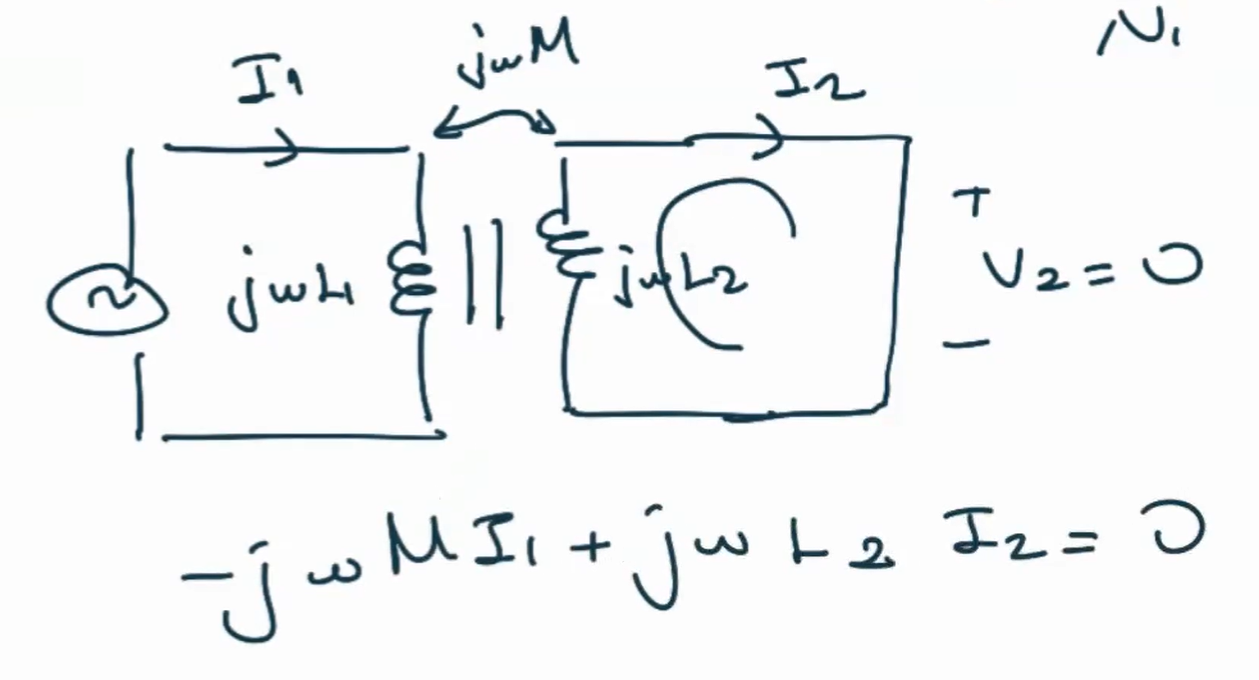 N₁
jωM
I₁
I₂
+
jωL₁
jωL₂
V₂ = 0
−
-jωMI₁ + jωL₂ I₂ = 0